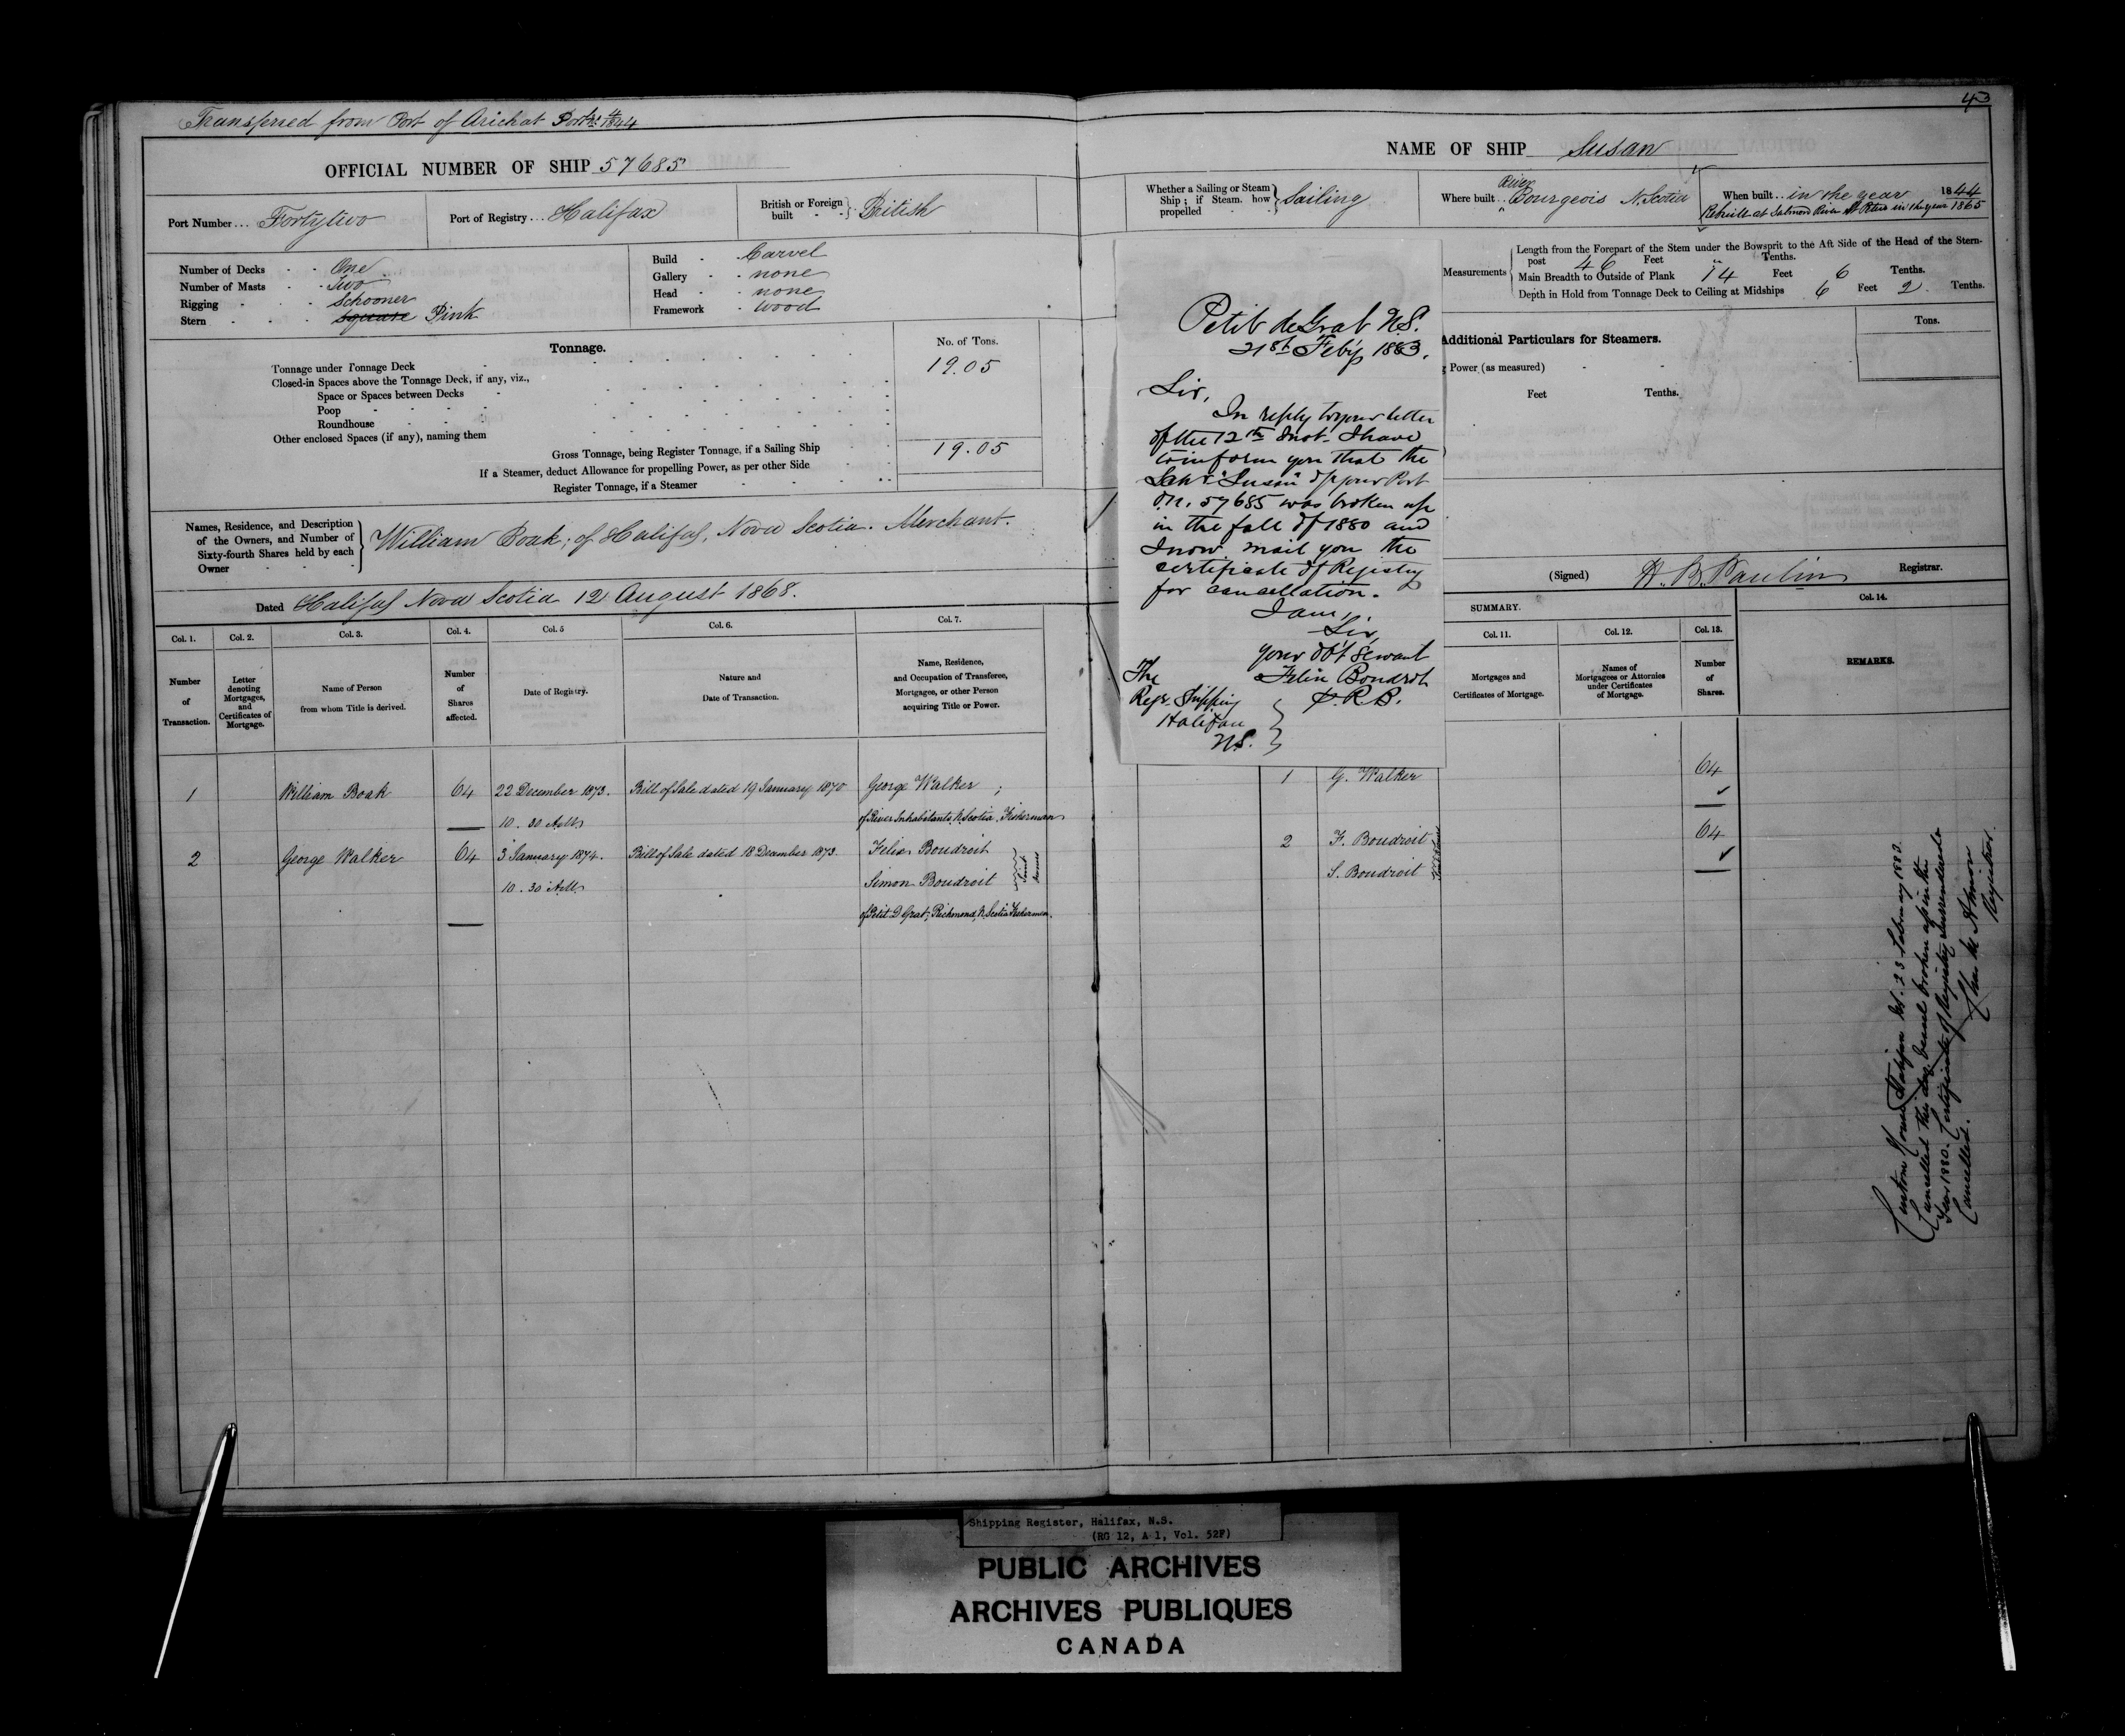 Transferred from Port of Arichat
OFFICIAL NUMBER OF SHIP 57685
Port Number... Fortytwo
Port of Registry... Halifax
British or Foreign built - - } British
Number of Decks - - One
Number of Masts - - Two
Rigging - - - Schooner
Stern - - - square Pink
Build - Carvel
Gallery - - none
Head - - none
Framework - wood
Tonnage.
No. of Tons.
Tonnage under Tonnage Deck - 19.05
Closed-in Spaces above the Tonnage Deck, if any, viz.,
Space or Spaces between Decks
Poop
Roundhouse
Other enclosed Spaces (if any), naming them
Gross Tonnage, being Register Tonnage, if a Sailing Ship 19.05
If a Steamer, deduct Allowance for propelling Power, as per other Side
Register Tonnage, if a Steamer
Names, Residence, and Description of the Owners, and Number of Sixty-fourth Shares held by each Owner } William Boak; of Halifax, Nova Scotia. Merchant.
Dated Halifax Nova Scotia 12 August 1868.
Col. 1. Col. 2. Col. 3. Col. 4. Col. 5 Col. 6. Col. 7.
Number of Transaction.
Letter denoting Mortgages, and Certificates of Mortgage.
Name of Person from whom Title is derived.
Number of Shares affected.
Date of Registry.
Nature and Date of Transaction.
Name, Residence, and Occupation of Transferee, Mortgagee, or other Person acquiring Title or Power.
1 William Boak 64 22 December 1873. Bill of Sale dated 19 January 1870 George Walker;
10.30 AM of River Inhabitants, N. Scotia, Fisherman
2 George Walker 64 3 January 1874. Bill of Sale dated 18 December 1873. Felix Boudroit
10.30 AM Simon Boudroit } Joint Owners
of Petit D Grat; Richmond, N. Scotia Fishermen.
43
NAME OF SHIP Susan
Whether a Sailing or Steam Ship; if Steam, how propelled } Sailing
Where built.. River Bourgeois N. Scotia
When built... in the year 1844
Rebuilt at Salmond River St Peters in the year 1865
Measurements { Length from the Forepart of the Stem under the Bowsprit to the Aft Side of the Head of the Stern-
post 46 Feet " Tenths.
Main Breadth to Outside of Plank 14 Feet 6 Tenths.
Depth in Hold from Tonnage Deck to Ceiling at Midships 6 Feet 2 Tenths.
Additional Particulars for Steamers.
Tons.
Power (as measured)
Feet Tenths.
Petit de Grat N.S.
21st Feb'y 1883.
Sir,
In reply to your letter
of the 12th Inst. I have
to inform you that the
Schr. "Susan" of your Port
O.N. 57685 was broken up
in the fall of 1880 and
I now mail you the
certificate of Registry
for cancellation.
I am,
Sir,
your ob't Servant
Felix Boudrot
P.R.B.
The
Regr. Shipping
Halifax
N.S.
(Signed) H. B. Paulin Registrar.
SUMMARY.
Col. 11. Col. 12. Col. 13. Col. 14.
Mortgages and Certificates of Mortgage.
Names of Mortgagees or Attornies under Certificates of Mortgage.
Number of Shares.
REMARKS.
1 G. Walker 64
2 F. Boudroit 64
S. Boudroit Joint Owners
Custom House Halifax NS. 23 February 1883.
Cancelled this day, vessel broken up in the
Year 1880. Certificate of Registry surrendered &
Cancelled.
Registrar.
Shipping Register, Halifax, N.S.
(RG 12, A 1, Vol. 52F)
PUBLIC ARCHIVES
ARCHIVES PUBLIQUES
CANADA